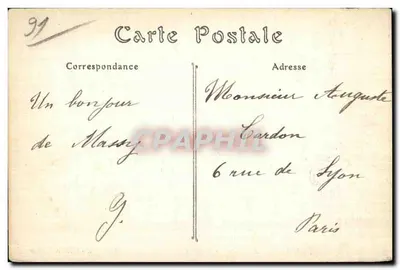 91
Carte Postale
Correspondance
Adresse
Un bonjour
de Massy
Y.
Monsieur Auguste
Cardon
6 rue de Lyon
Paris
CPAPHIL